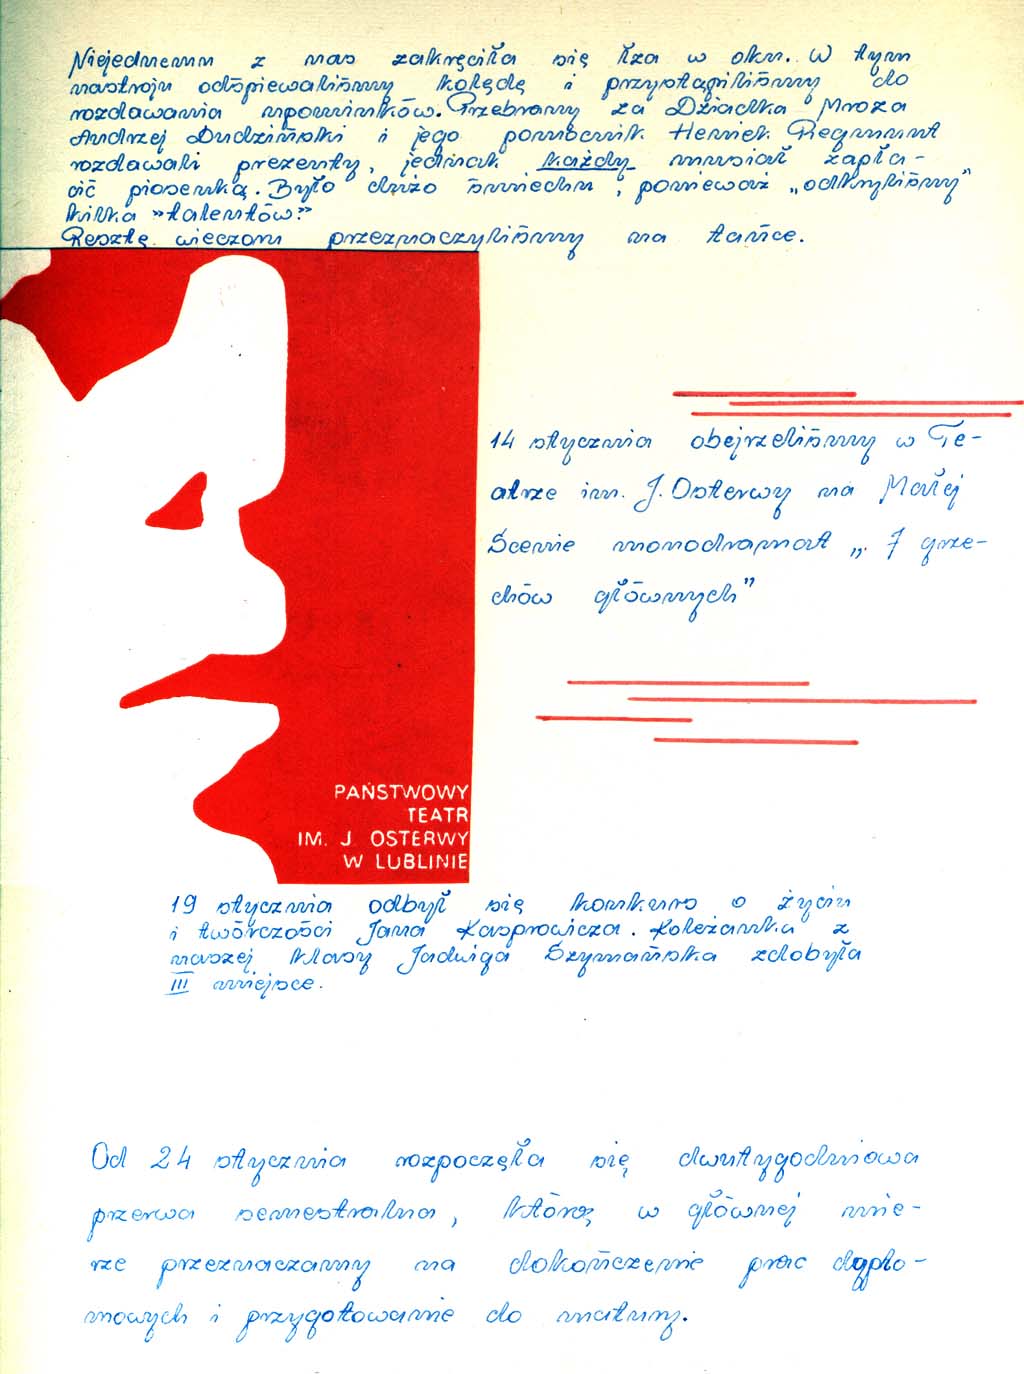 Niejednemu z nas zakręciła się łza w oku. W tym
nastroju odśpiewaliśmy kolędę i przystąpiliśmy do
rozdawania upominków. Przebrany za Dziadka Mroza
Andrzej Dudziński i jego pomocnik Heniek Regmunt
rozdawali prezenty, jednak każdy musiał zapła-
cić piosenką. Było dużo śmiechu, ponieważ „odkryliśmy"
kilka »talentów."
Resztę wieczoru przeznaczyliśmy na tańce.
14 stycznia obejrzeliśmy w Te-
atrze im. J. Osterwy na Małej
Scenie monodramat „7 grze-
chów głównych"
PAŃSTWOWY
TEATR
IM. J. OSTERWY
W LUBLINIE
19 stycznia odbył się konkurs o życiu
i twórczości Jana Kasprowicza. Koleżanka z
naszej klasy Jadwiga Szymańska zdobyła
III miejsce.
Od 24 stycznia rozpoczęła się dwutygodniowa
przerwa semestralna, którą w głównej mie-
rze przeznaczamy na dokończenie prac dyplo-
mowych i przygotowanie do matury.